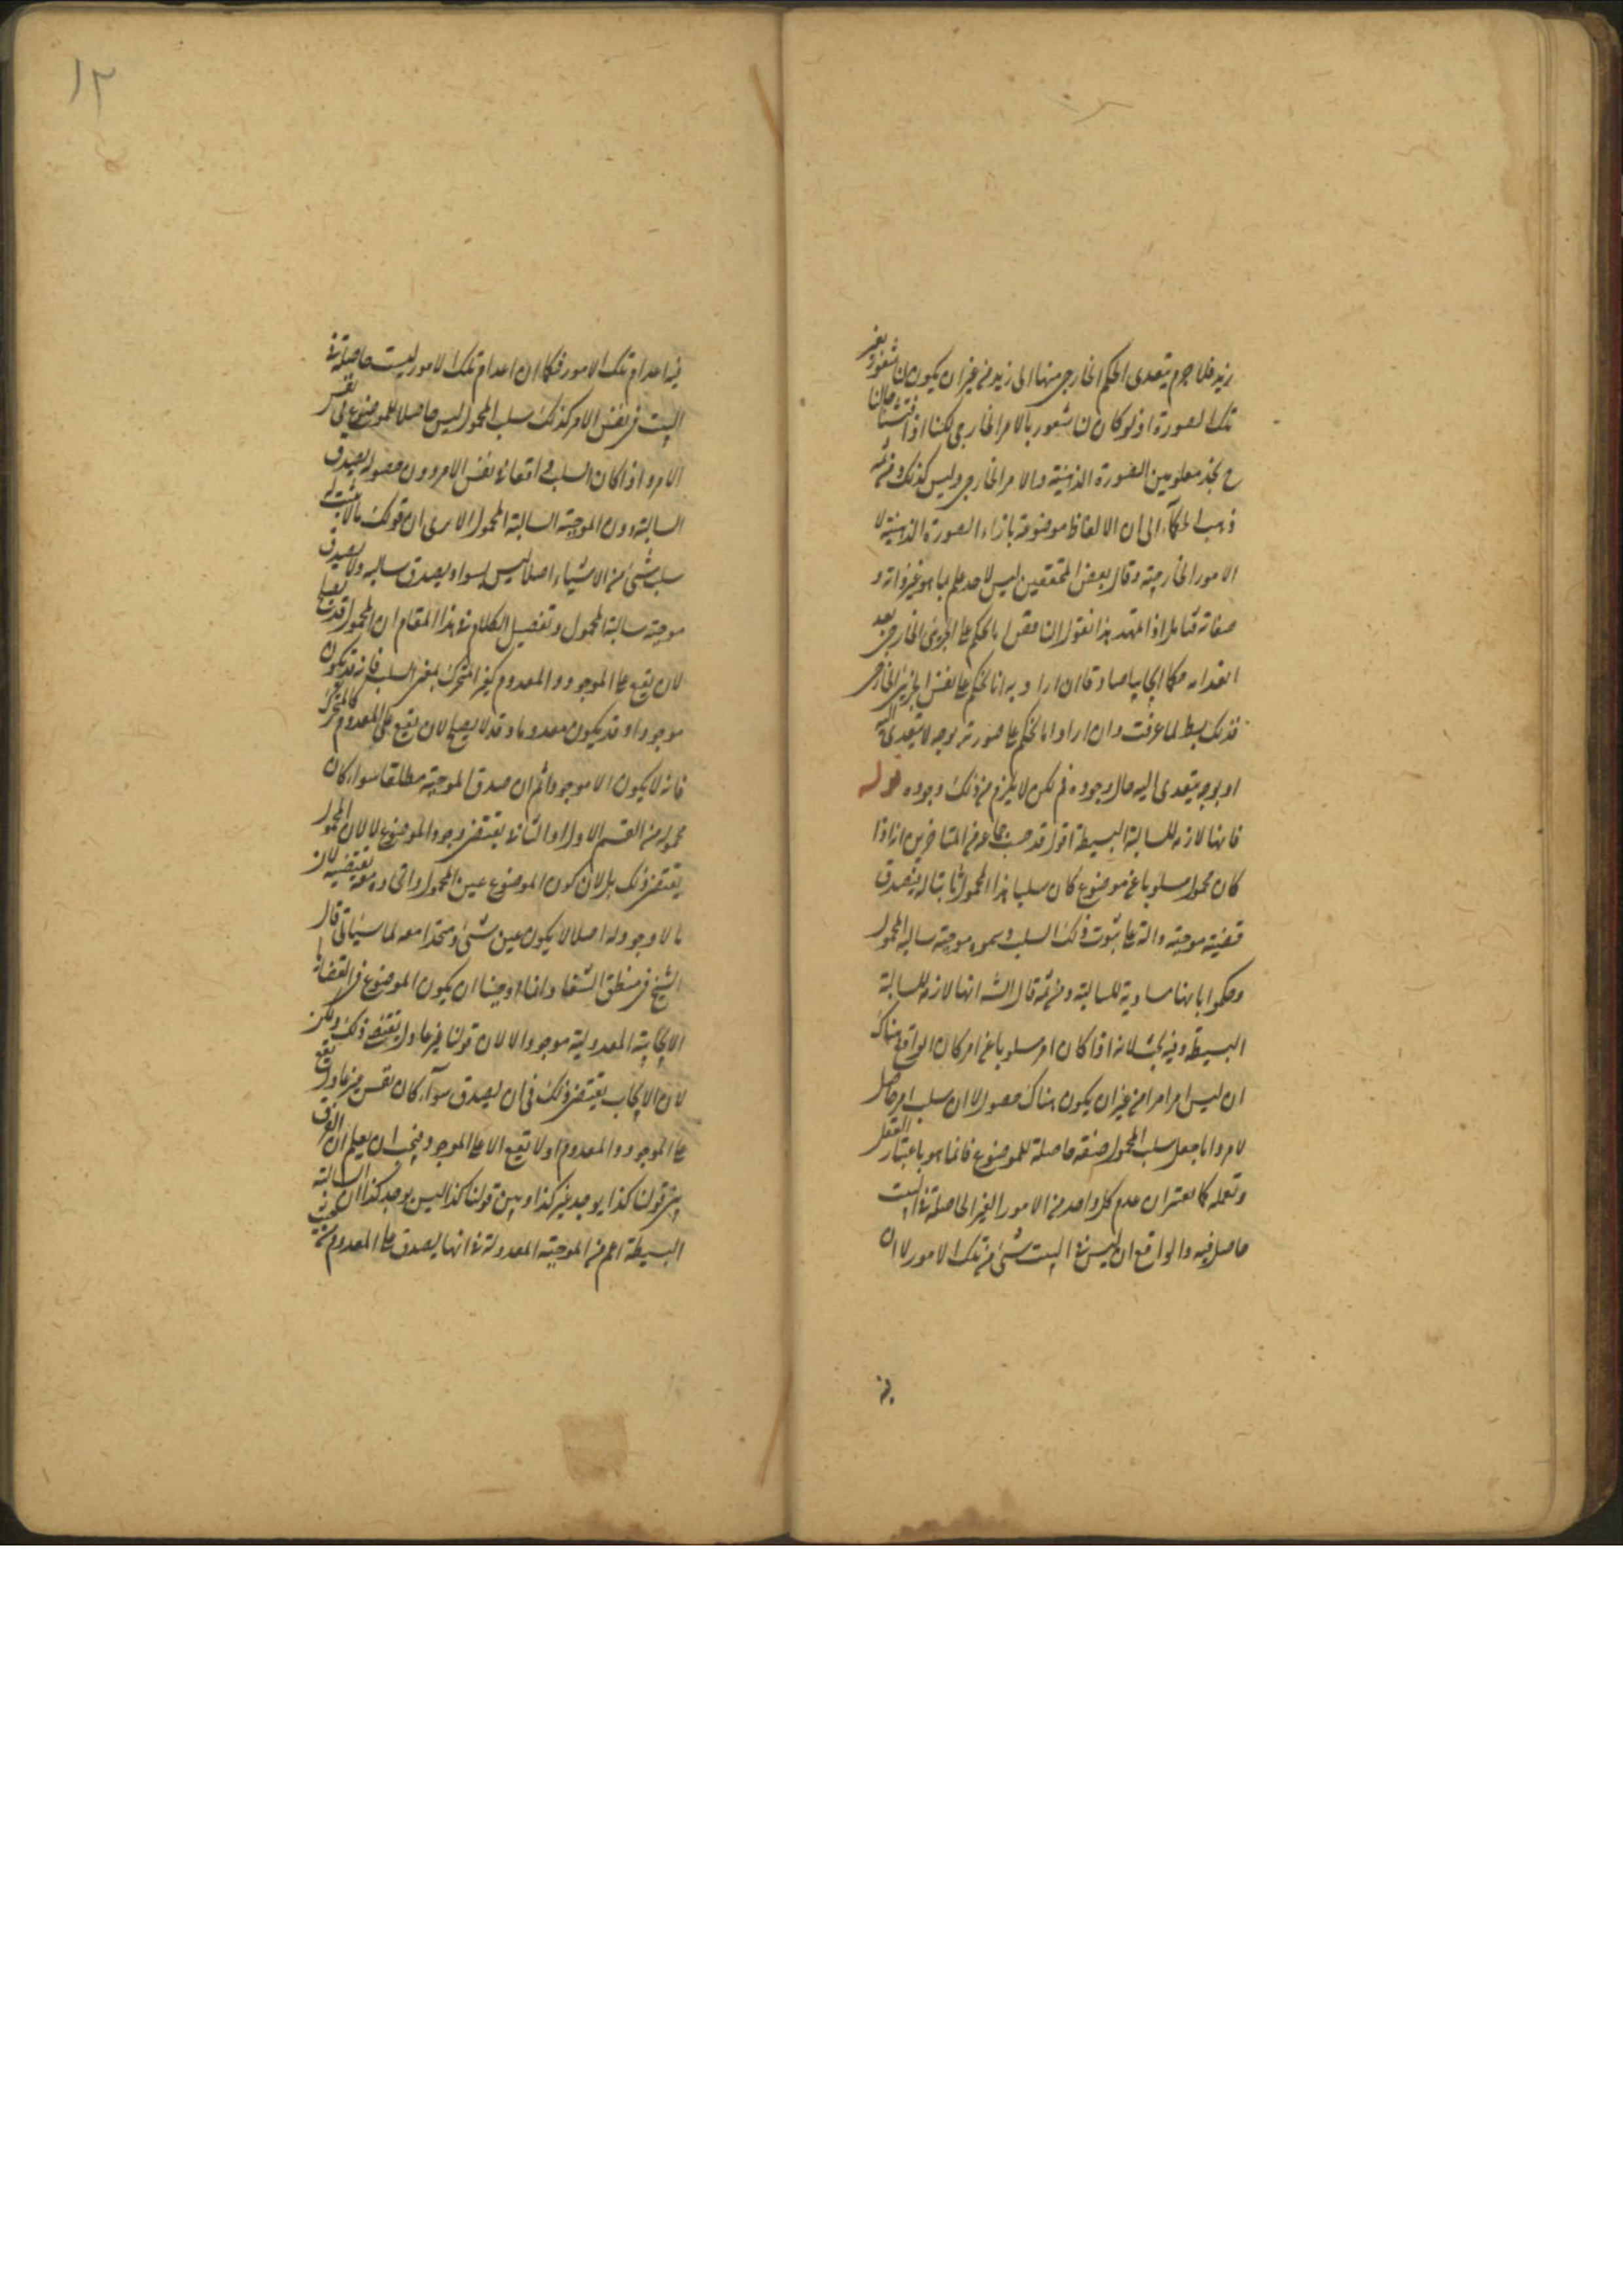 بزيد فلا جرم يتعدى الحكم الخارجى منها الى زيد من غير ان يكون لنا شعور بغير
تلك الصورة اذ لو كان لنا شعور بالامر الخارجى لكنا اذا فتشنا حالنا
ح نجد معلومين الصورة الذهنية والامر الخارجى وليس كذلك ومن ثمه
ذهب الحكماء الى ان الالفاظ موضوعة بازاء الصورة الذهنية لا
الامور الخارجية وقال بعض المحققين ليس لاحد علم بما هو غير ذاته و
صفاته فتامل اذا تمهد هذا نقول ان الناقض بالحكم على الجزئى الخارجى بعد
انعدامه حكما ايجابيا صادقا ان اراد به انا نحكم على نفس الجزئى الخارجى
فذلك بط لما عرفت وان اراد انا نحكم على صورته بوجه لا يتعدى اليه
او بوجه يتعدى اليه حال وجوده فم لكن لا يلزم من ذلك وجوده قوله
فانها لازمة للسالبة البسيطة اقول قد حسب جماعة من المتاخرين انه اذا
كان محمول مسلوبا عن موضوع كان سلب هذا المحمول ثابتا له فيصدق
قضية موجبة دالة على ثبوت ذلك السلب وسموه موجبة سالبة المحمول
وحكموا بانها مساوية للسالبة ومن ثمه قال الش انها لازمة للسالبة
البسيطة وفيه بحث لانه اذا كان امر مسلوبا عن امر كان الواقع هناك
ان ليس امر امرا من غير ان يكون هناك حصول لا ان سلب امر حاصل
لامر واما جعل سلب المحمول صفة حاصلة للموضوع فانما هو باعتبار العقل
وتعمله كما يعتبر ان عدم كل واحد من الامور الغير الحاصلة فى البيت
حاصل فيه والواقع ان ليس فى البيت شئ من تلك الامور لا ان
فيه
١٢
فيه اعدام تلك الامور فكما ان اعدام تلك الامور ليست حاصلة فى
البيت فى نفس الامر كذلك سلب المحمول ليس حاصلا للموضوع فى نفس
الامر واذا كان السلب واقعا فى نفس الامر دون حصوله يصدق
السالبة دون الموجبة السالبة المحمول الا يرى ان قولك ما لا يثبت له
سلب شئ من الاشياء اصلا ليس بسواد يصدق سالبه ولا يصدق
موجبة سالبة المحمول وتفصيل الكلام فى هذا المقام ان المحمول قد يصلح
لان يقع على الموجود والمعدوم كغير المتحرك بمعنى السلب فانه قد يكون
موجودا وقد يكون معدوما وقد لا يصلح لان يقع على المعدوم كالمتحرك
فانه لا يكون الا موجودا ثم ان صدق الموجبة مطلقا سواء كان
محموله من القسم الاول او الثانى يقتضى وجود الموضوع لا لان المحمول
يقتضى ذلك بل لان كون الموضوع عين المحمول واتحاده معه يقتضيه لان
ما لا وجود له اصلا لا يكون عين شئ ومتحدا معه لما سياتى قال
الشيخ فى منطق الشفاء وانما اوجبنا ان يكون الموضوع فى القضايا
الايجابية المعدولية موجودا لا لان قولنا غير عادل يقتضى ذلك ولكن
لان الايجاب يقتضى ذلك فى ان يصدق سوآء كان نفس غير عادل يقع
على الموجود والمعدوم او لا تقع الا على الموجود فيجب ان يعلم ان الفرق
بين قولنا كذا يوجد غير كذا وبين قولنا كذا ليس يوجد كذا ان السالبة
البسيطة اعم من الموجبة المعدولة فى انها يصدق على المعدوم من حيث